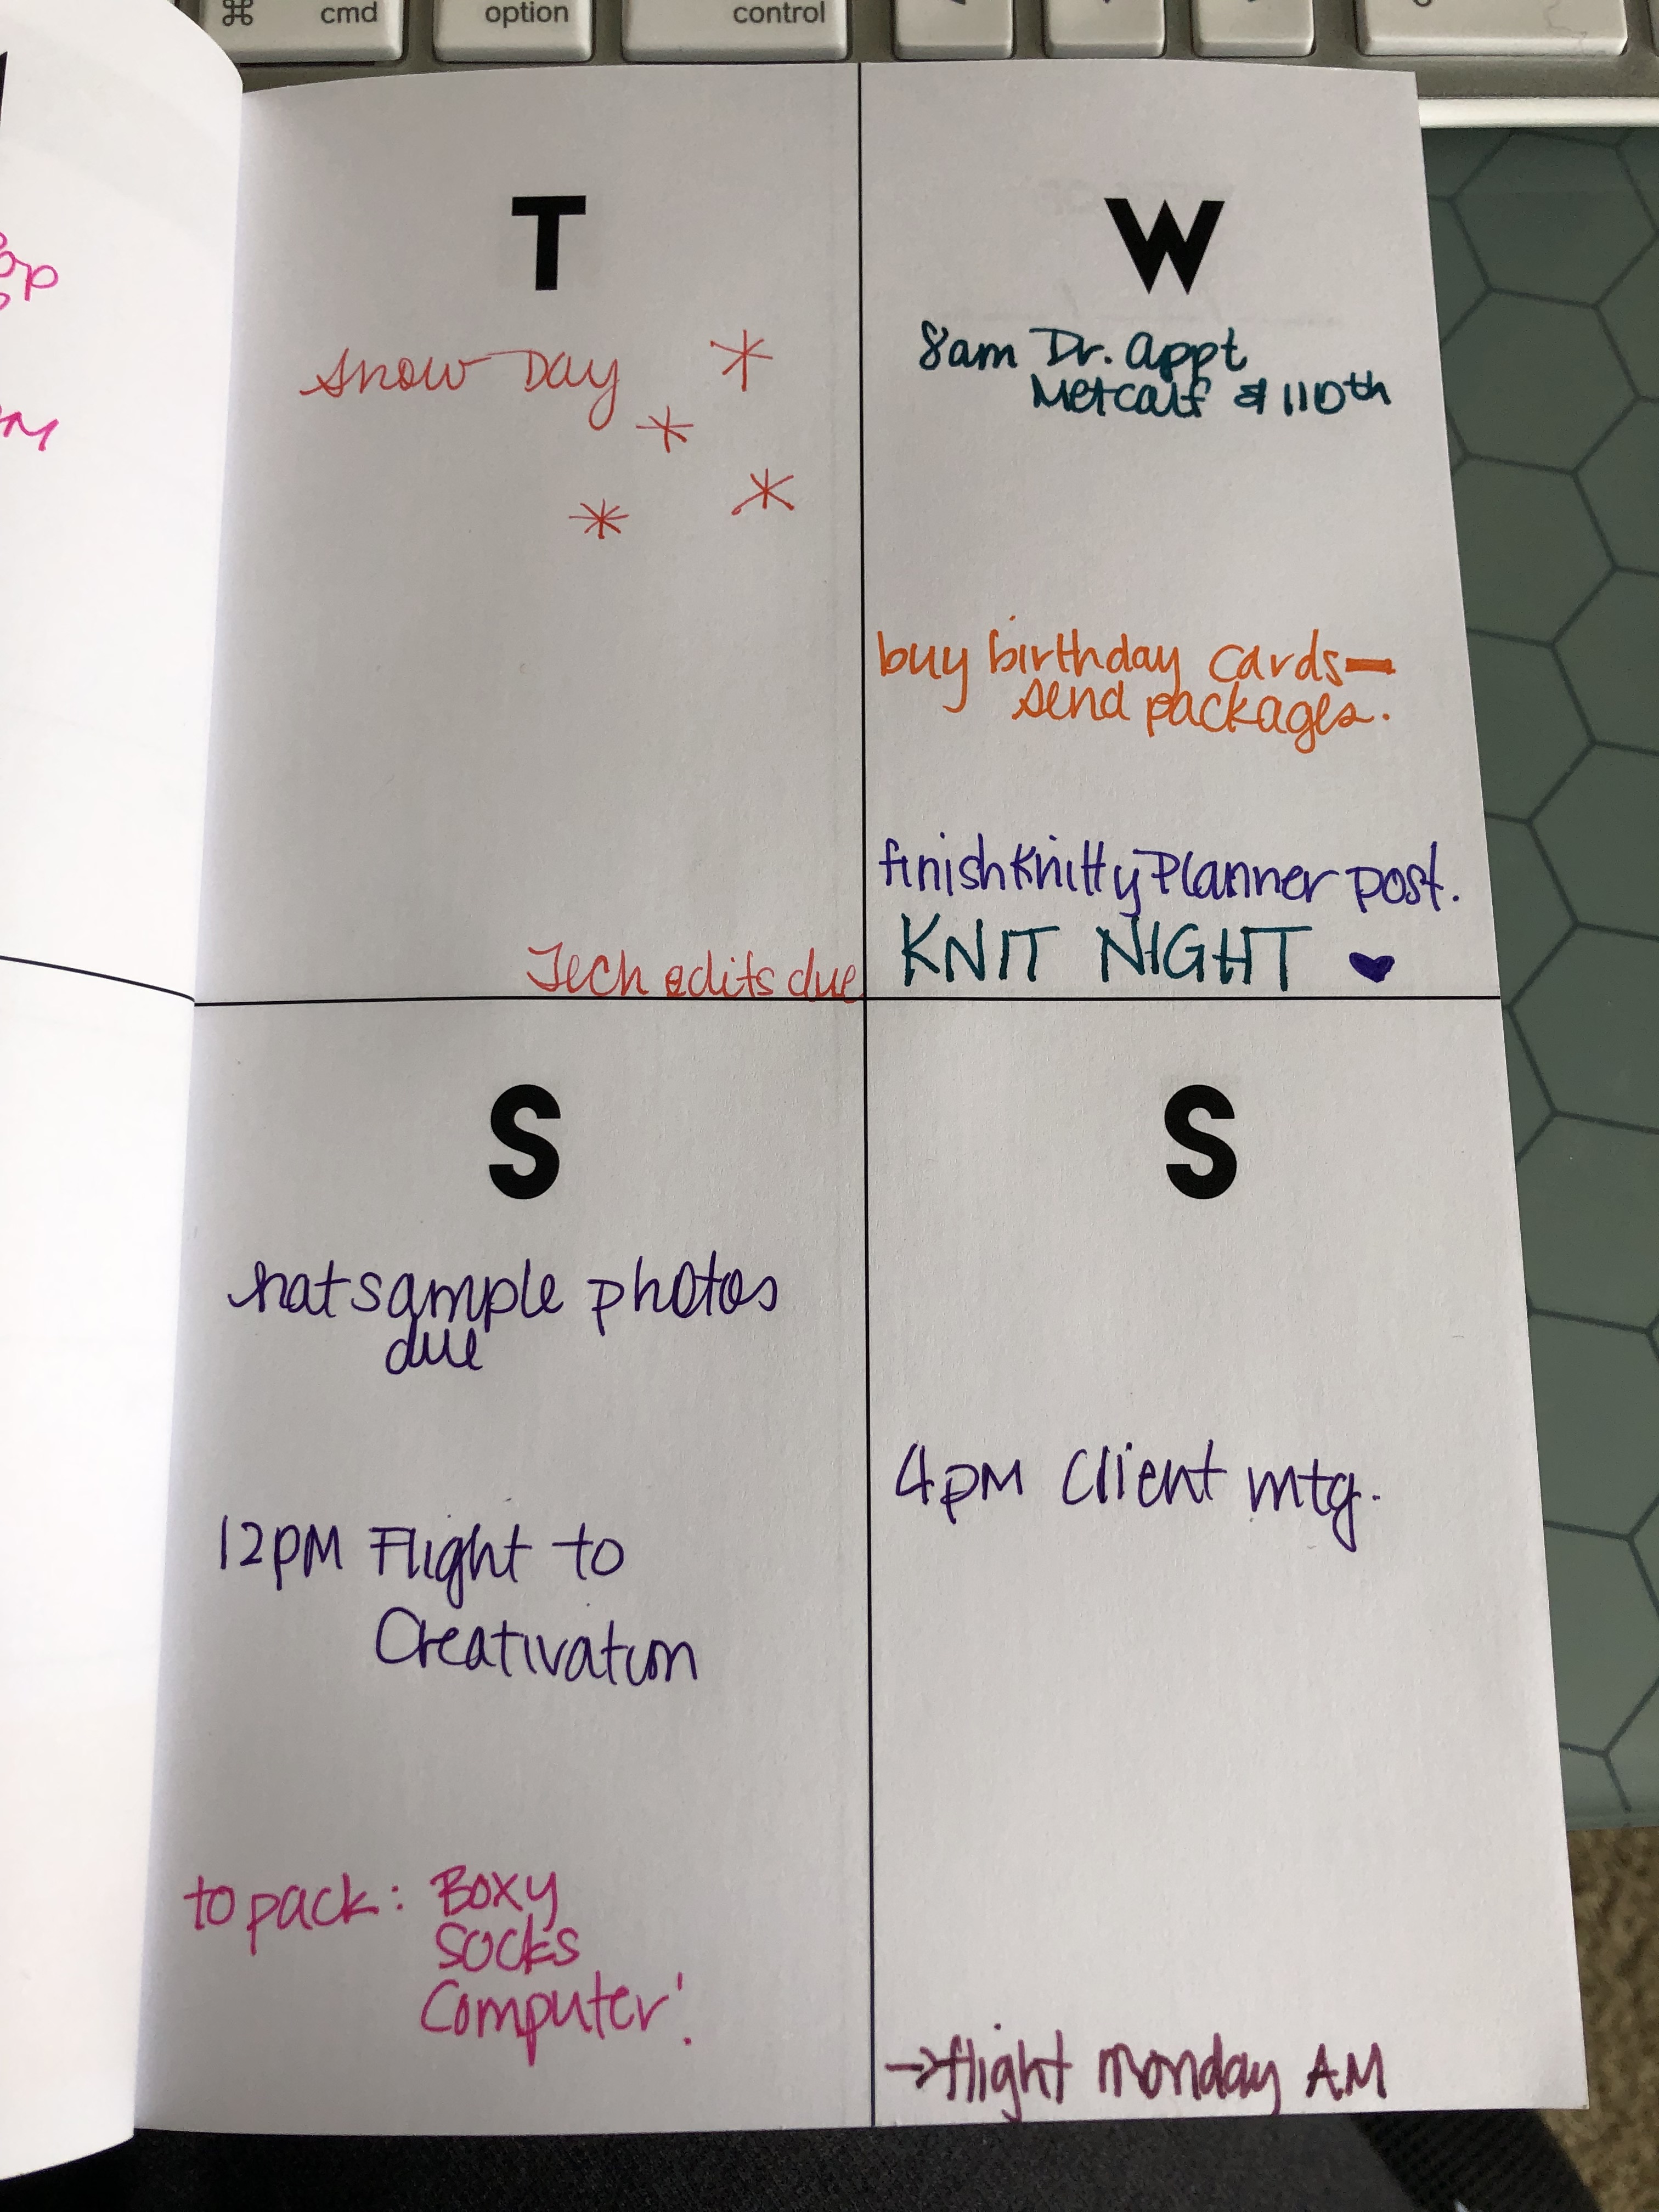 ⌘ cmd
option
control
op
M
T
Snow Day
Tech edits due
W
8am Dr. Appt
Metcalf & 110th
buy birthday cards—
send packages.
finish Knitty Planner post.
KNIT NIGHT ♥
S
hat sample photos
due
12PM Flight to
Creativation
to pack: Boxy
Socks
Computer!
S
4PM Client mtg.
→flight Monday AM